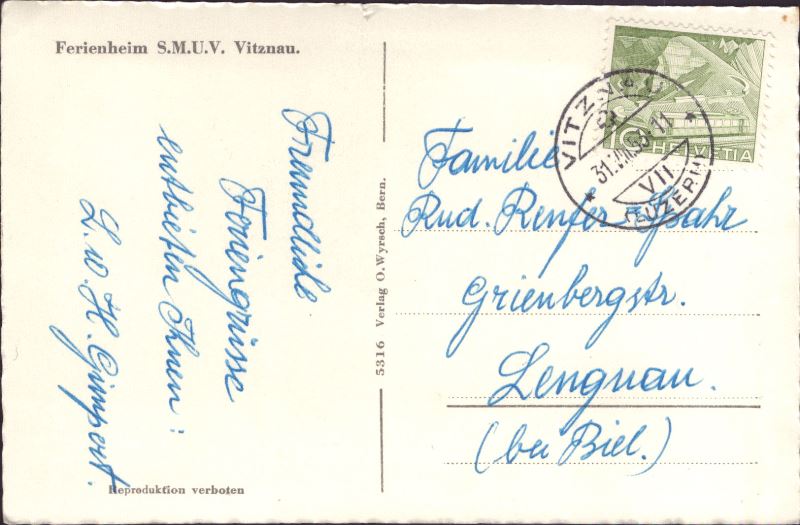 Ferienheim S.M.U.V. Vitznau.
Freundliche
Feriengrüsse
entbieten Ihnen:
L. u. H. Gimpert.
Reproduktion verboten
5316 Verlag O. Wyrsch, Bern.
10 HELVETIA
VITZNAU
31. VIII. 53. 11
VII
(LUZERN)
Familie
Rud. Renfer-Spahr
Grienbergstr.
Lengnau.
(bei Biel.)